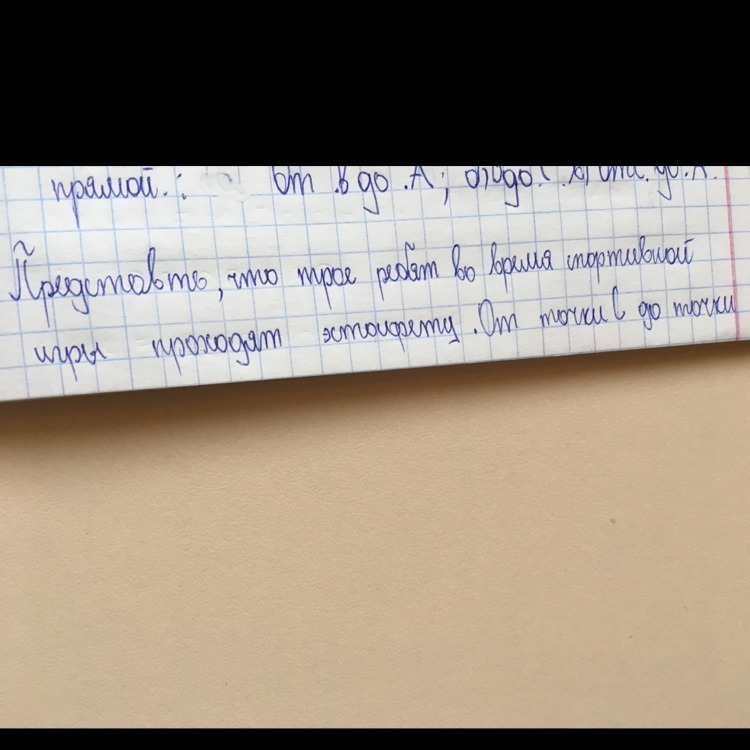 прямой. : от .В до .А;
Представть, что трое ребят во время спортивной
игры проходят эстафету. От точки С до точки